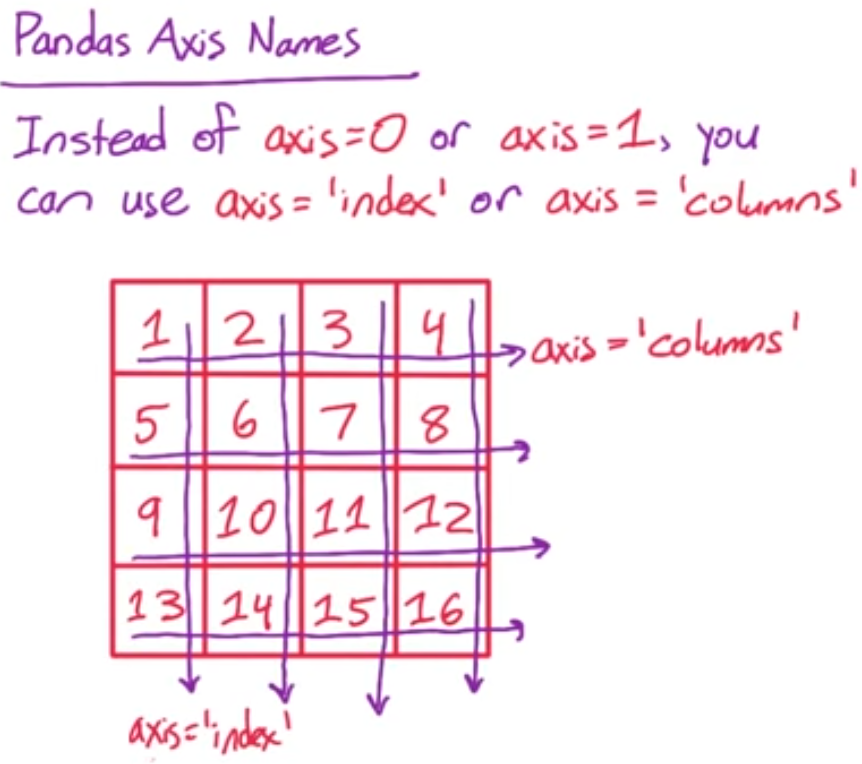 Pandas Axis Names
Instead of axis=0 or axis=1, you
can use axis='index' or axis='columns'
1 2 3 4
axis='columns'
5 6 7 8
9 10 11 12
13 14 15 16
axis='index'